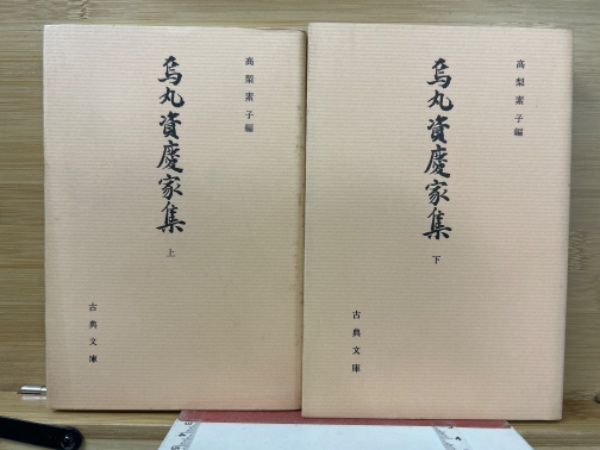 高梨素子編
烏丸資慶家集
上
古典文庫
高梨素子編
烏丸資慶家集
下
古典文庫